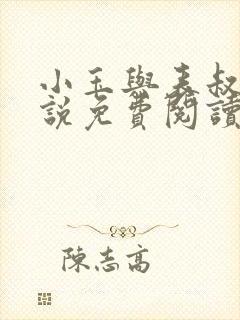 小玉與表叔
說免費閱讀
陳志高